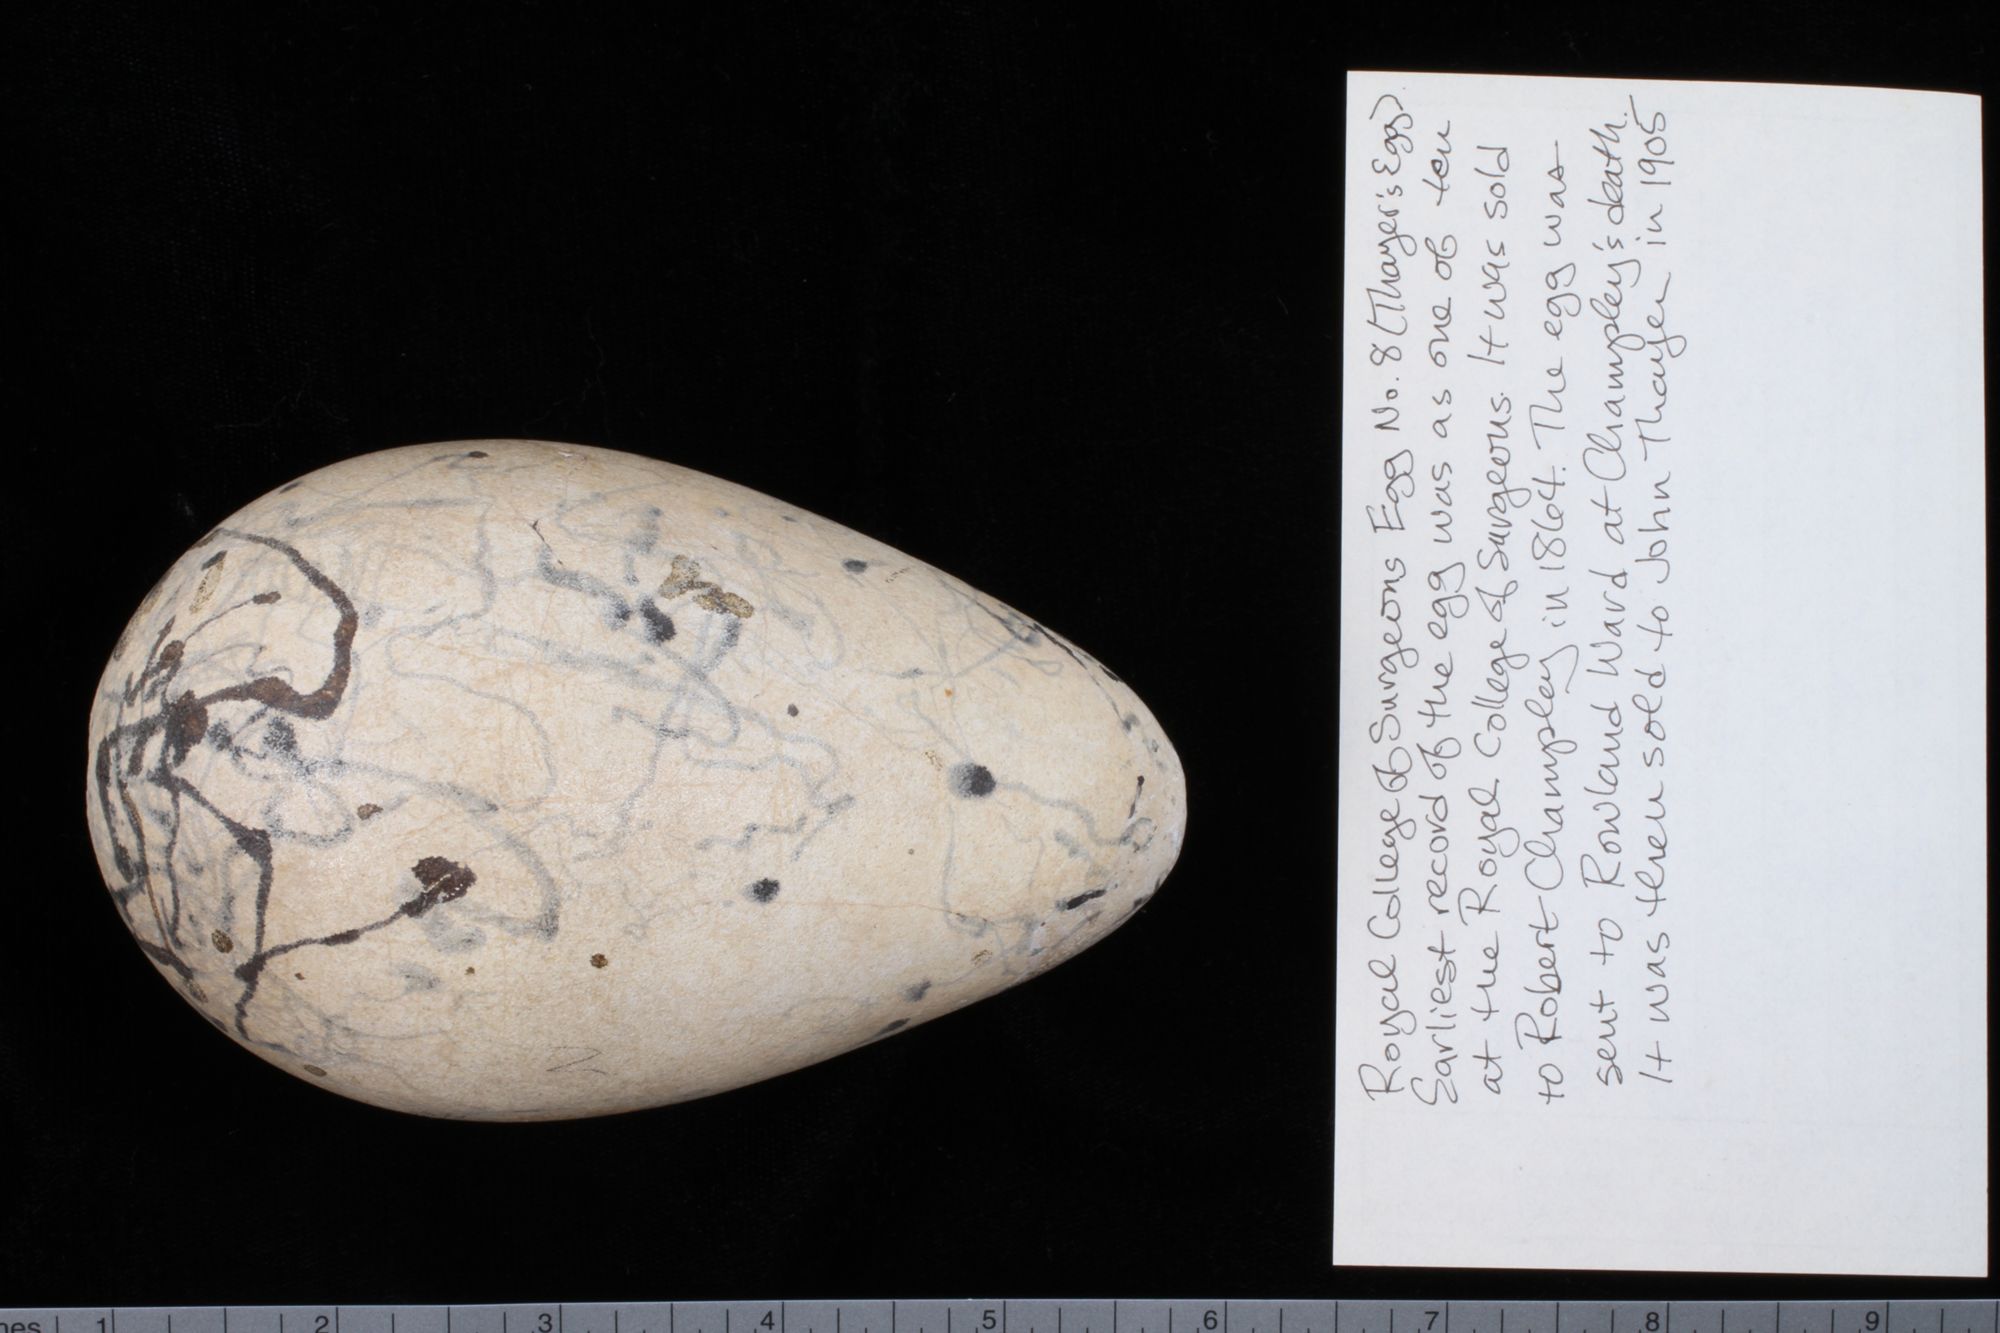 Royal College of Surgeons Egg No. 8 (Thayer's Egg).
Earliest record of the egg was as one of ten
at the Royal College of Surgeons. It was sold
to Robert Champley in 1864. The egg was
sent to Rowland Ward at Champley's death.
It was then sold to John Thayer in 1905
2
hes 1 2 3 4 5 6 7 8 9